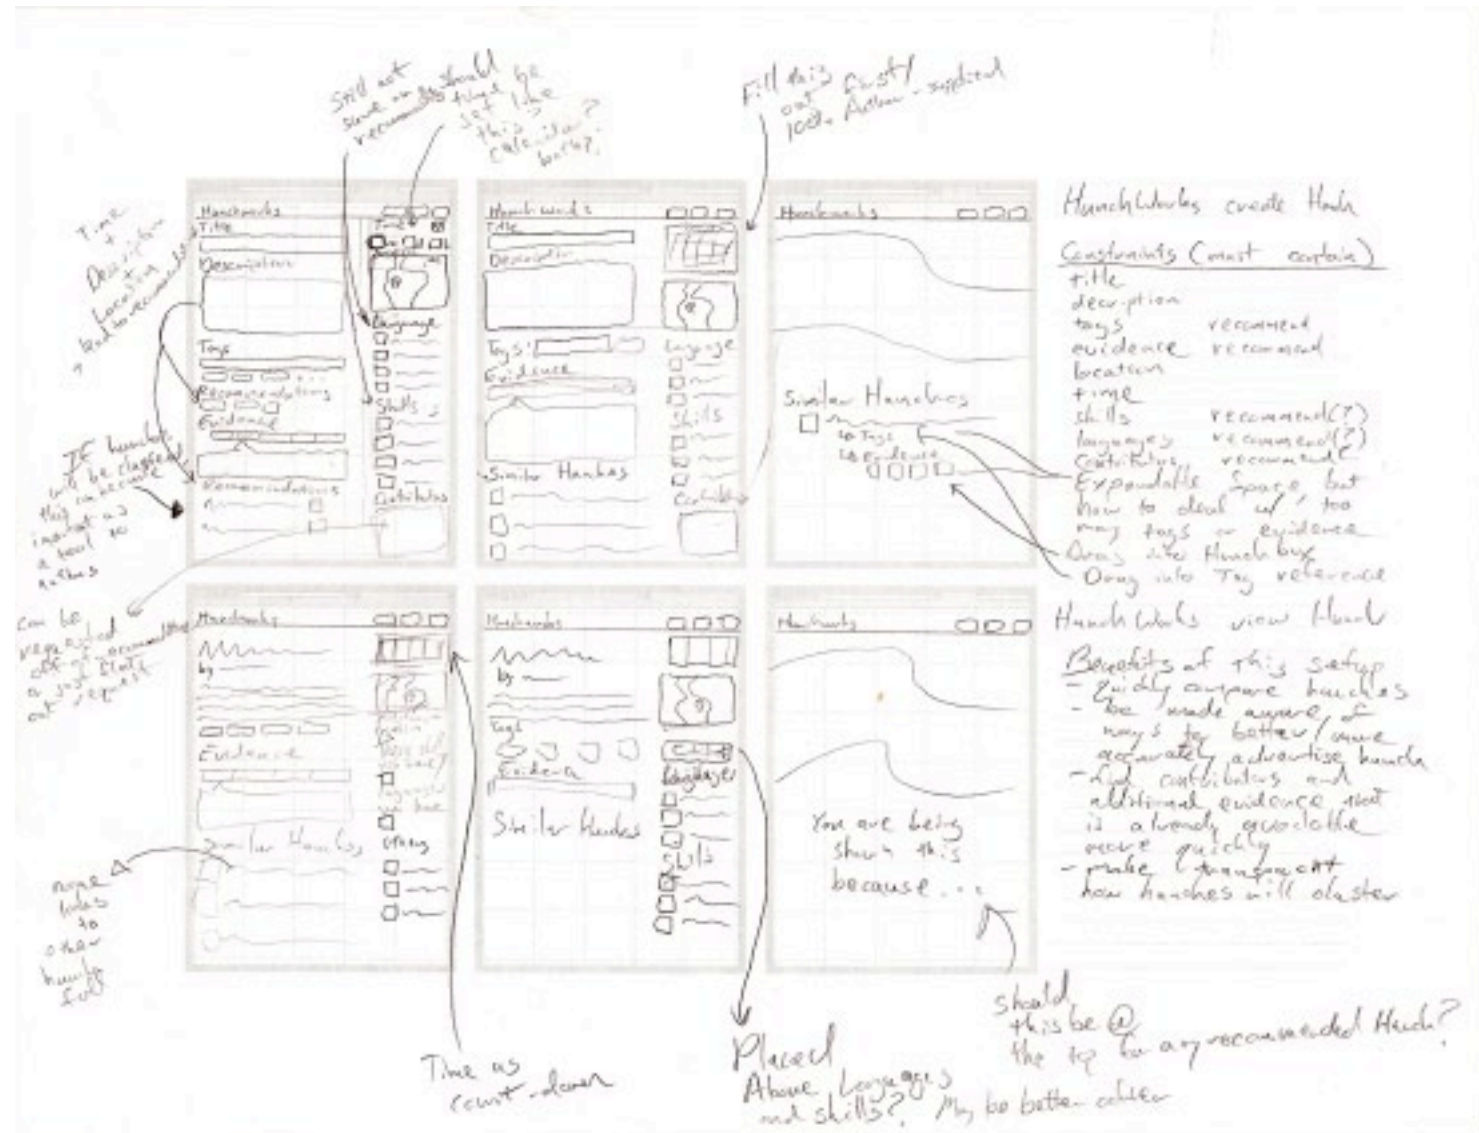 Still not
sure on
recomm
should
time be
set like
this is
calendar?
better?
Fill this
out first/
100% Author-supplied
Time
+
Description
Location
lead to recommend
IF hunches
will be classified
this can become
important as
a tool to
authors
can be
requested
off of recommend
or just state
out request
Hunchworks
Title
Description
Tags
Recommendations
Evidence
Recommendations
Time
Language
Skills
Contributors
Hunchworks
Title
Description
Tags:
Evidence
Similar Hunches
Language
Skills
Contributors
Hunchworks
Similar Hunches
Tags
Evidence
HunchWorks create Hunch
Constraints (must contain)
title
decription
tags recommend
evidence recommend
location
time
skills recommend(?)
languages recommend(?)
Contributors recommend?
Expandable Space but
how to deal w/ too
many tags or evidence
Drag into Hunch box
Drag into Tag reference
Hunchworks
by
Evidence
Similar Hunches
Hunchworks
by
Tags
Evidence
Similar Hunches
Languages
Skills
Hunchworks
You are being
shown this
because...
HunchWorks view Hunch
Benefits of this setup
- Quickly compare hunches
- be made aware of
ways to better/more
accurately advertise hunch
- find contributors and
additional evidence that
is already available
more quickly
- make transparent
how hunches will cluster
more
links
to
other
hunches
Time as
count-down
Placed
Above Languages
and skills? May be better
should
this be @
the top for any recommended Hunch?